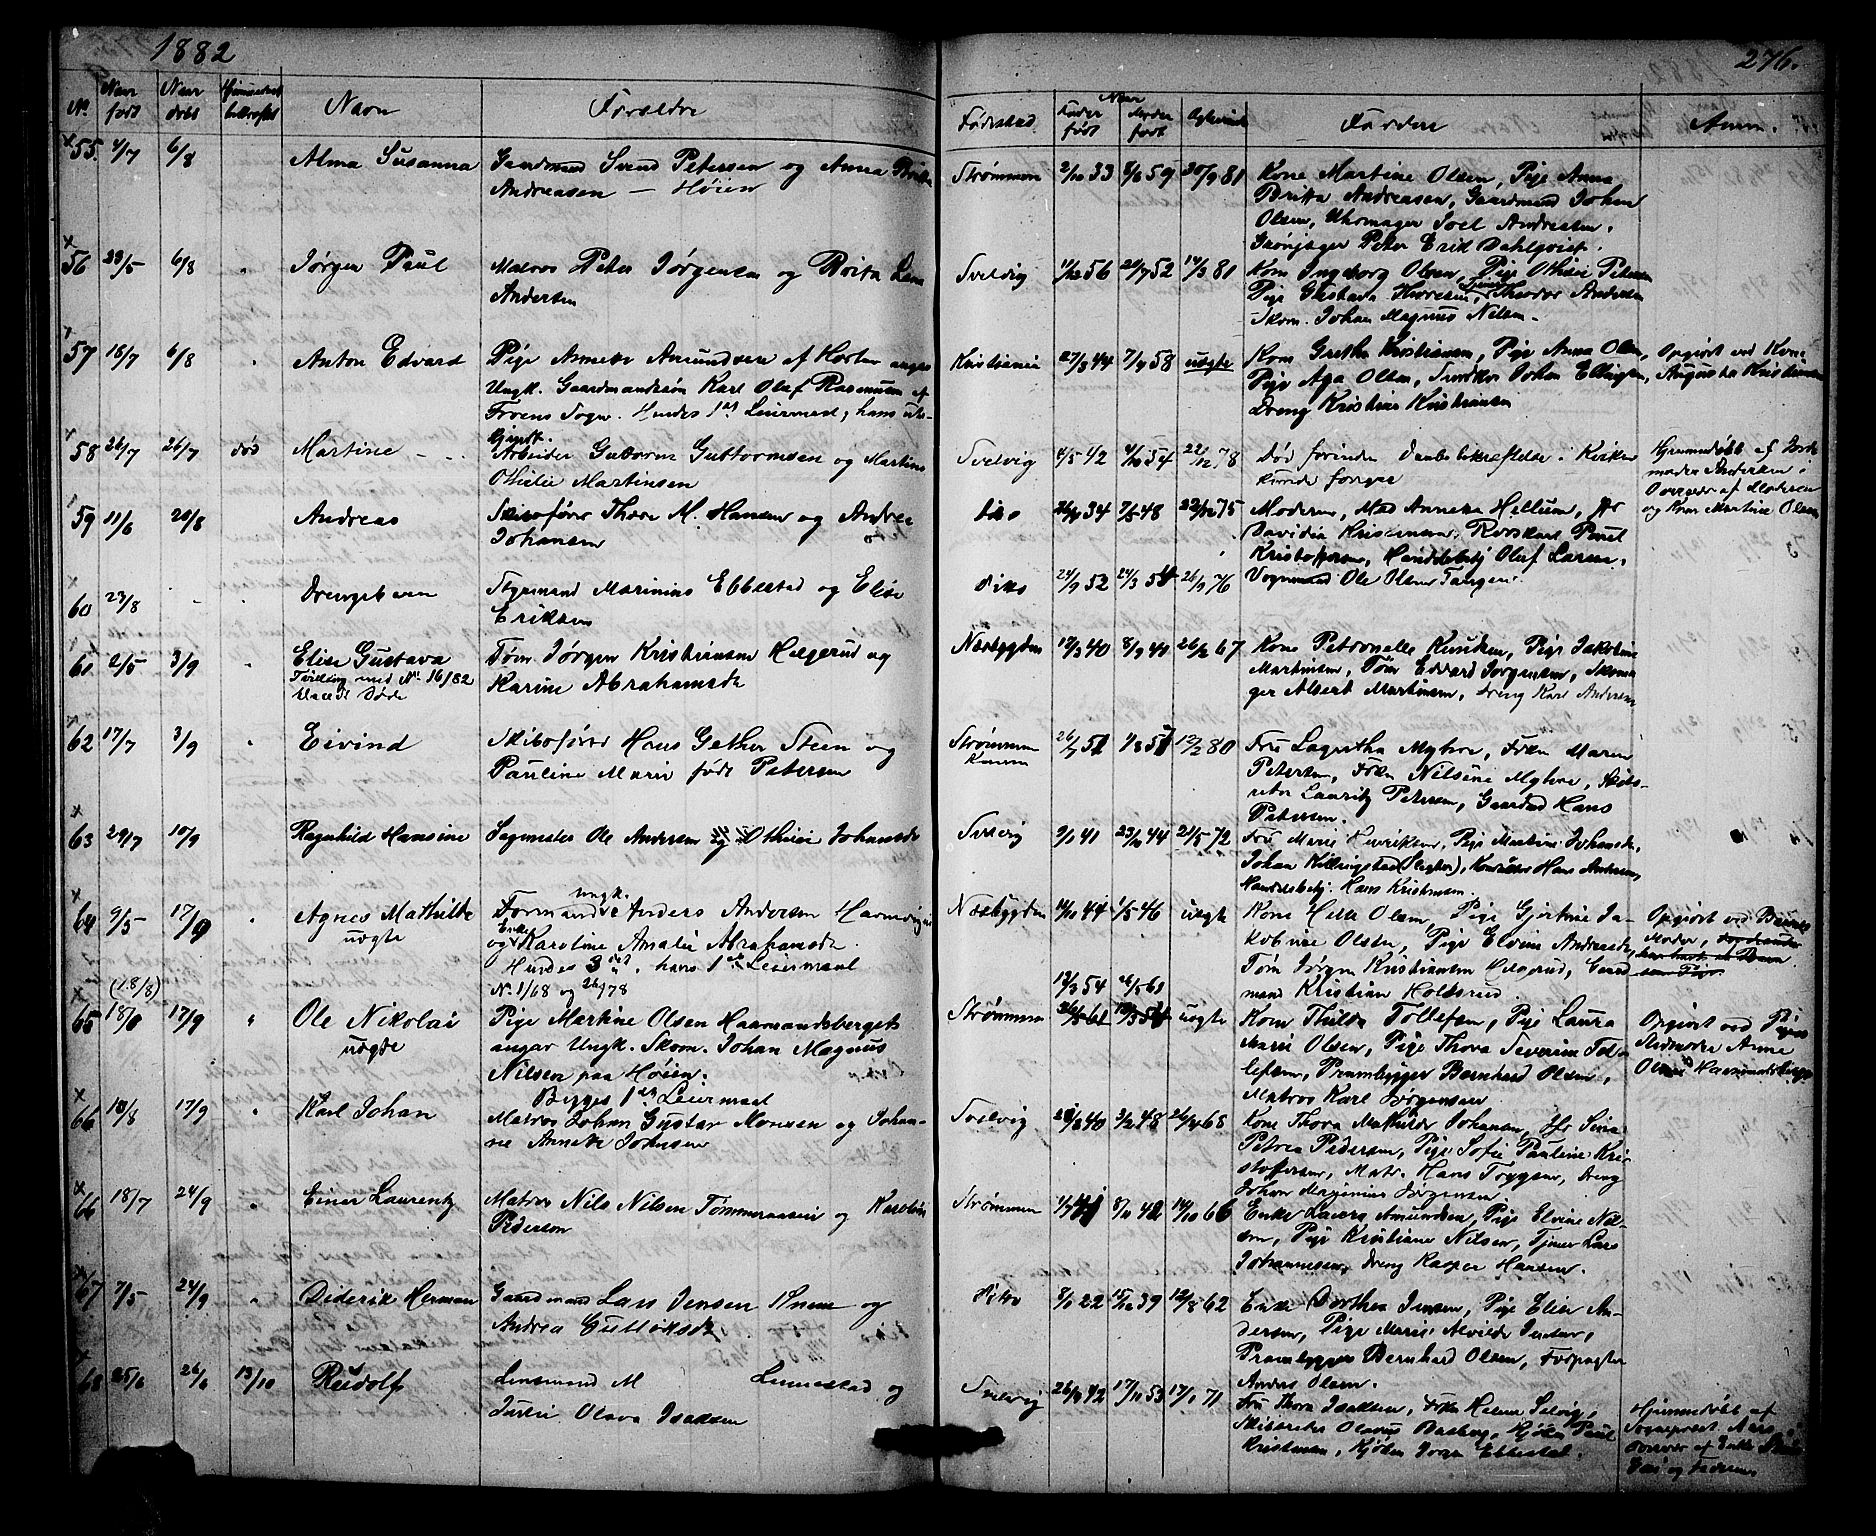 1882
276.
No. Naar født Naar døbt Hjemmedaab bekræftet Navn Forældre Fødested Naar Fader født Moder født Ægteviede Faddere Anm.
55. 4/7 6/8 Alma Susanna Gaardmand Svend Petersen og Anna Britta
Andreasen — Høien
Strømmen 2/10 33 59 30/9 81 Kone Martine Olsen, Pige Anna
Britta Andreasen, Gaardmand Johan
Olsen, Uhrmager Joel Andreasen,
Peter Erik Dahlqvist.
56 23/5 6/8 " Jørgen Paul Matros Peter Jørgensen og Brita Lena
Andersen
Svelvig 11/12 56 52 14/3 81 Kone Ingeborg Olsen, Pige Othilie Petersen
Pige Gustava Theodor Andersen
Skom. Johan Magnus Nilsen
57 18/7 6/8 " Anton Edvard Pige Annette Amundsen af Horten angav
Ungk. Gaardmandssøn Karl Olaf Rasmussen af
Froens Sogn. Hendes 1st Leiermaal, hans ube-
kjendt.
Kristiania 27/3 44 7/4 58 uægte Kone Grethe Kristiansen, Pige Anna Olsen,
Pige Aga Olsen, Johan Ellingsen,
Dreng Kristian Kristiansen
Opgivet ved Kone
Augusta Kristiansen
58 26/7 26/7 død Martine Arbeider Guttorm Guttormsen og Martine
Othilie Martinsen
Svelvig 4/5 42 4/10 54 22/12 78 Død forinden Daabsbekræftelse i Kirken
kunde foregaa
Hjemmedøbt af Jord-
moder Andersen i
Overvær af Moderen
og Kone Martine Olsen
59 11/6 20/8 Andreas Skibsfører Thore M. Hansen og Andrea
Johansen
Ditto 34 7/5 48 22/12 75 Moderen, Mad Annette Hellum, Fr
Davidia Kristensen, Paul
Kristoffersen, Handelsbetj Olaf Larsen,
Vognmand Ole Olsen Tangen.
60 23/8 - - Drengebarn Styrmand Marinius Ebbestad og Elise
Eriksen
Ditto 24/9 52 24/3 54 26/9 76
61 2/5 3/9 " Elise Gustava Tøm Jørgen Kristiansen Helgerud og
Tvilling med No. 16/82 Karine Abrahamsdr
Næsbygden 12/3 40 8/9 41 26/2 67 Kone Petronelle Knudsen, Pige Jakobine
Martinsen, Tøm Edvard Jørgensen, Skoma-
ger Albert Martinsen, Dreng Karl Andersen
62 17/7 3/9 " Eivind Skibsfører Hans Gether Steen og
Pauline Marie født Petersen
Strømmen 26/7 51 1/8 57 12/2 80 Fru Lagertha Myhre, Frkn Maren
Petersen, Frkn Nilsine Myhre, Skibs-
reder Lauritz Petersen, Gaardmd Hans
Petersen.
63 29/7 10/9 Ragnhild Hansine Sagmester Ole Andersen og Othilie Johansdr
Svelvig 9/1 41 23/10 44 21/5 72 Fru Marie Henriksen, Pige Martine Johansdr,
Johan Killingstad (Slagter), Hans Andersen,
Handelsbetj. Hans Kristensen.
64 9/5 17/9 " Agnes Mathilde Ungk.
uægte Formand Anders Andersen
og Enke Karoline Amalie Abrahamsdr.
Hendes 3die, hans 1ste Leiermaal
No. 1/68 og 26/78
Næsbygden 12/10 44 1/5 46 uægte Kone Helle Olsen, Pige Gjertine Ja-
kobine Olsen, Pige Elvine Andreasdr,
Tøm Jørgen Kristiansen Helgerud, Gaard-
mand Kristian Holtsrud.
Opgivet ved Barnets
Moder,
(18/8)
65 18/8 17/9 " Ole Nikolai Pige Martine Olsen Haamandsberget
uægte angav Ungk. Skom. Johan Magnus
Nilsen paa Høien.
Begges 1ste Leiermaal
12/3 54 26/5 61
Strømmen uægte Kone Thilda Tollefsen, Pige Laura
Marie Olsen, Pige Thora Severine Tol-
lefsen, Prambygger Bernhard Olsen,
Matros Karl Jørgensen
Opgivet ved Pigens
Anne
Olsen Haamandsberget
66 18/8 17/9 " Karl Johan Matros Johan Gustav Monsen og Johan-
ne Annette Johnsen
Svelvig 40 3/2 48 26/4 68 Kone Thora Mathilde Johansen, Fr Lina
Petrea Pedersen, Pige Sofie Pauline Kri-
stoffersen, Matr. Hans Tryggesen, Dreng
Johan Jørgensen
66 18/7 24/9 " Einar Laurentz Matros Nils Nilsen Tømmeraasen og Karoline
Pederson
Strømmen 8/11 42 14/10 66 Enke Laura Amundsen, Pige Elvine Nil-
sen, Pige Kristiane Nilsen, Tjener Lars
Johannesen, Dreng Kasper Hansen.
67 7/5 24/9 " Diderik Herman Gaardmand Lars Jensen Knem og
Andrea Guttoksdr
Ditto 8/1 22 15/12 39 12/8 62 Enke Dorthea Jensen, Pige Elise An-
dersen, Pige Marie Alvilde Jensen,
Prambygger Bernhard Olsen, Forpagter
Anders Olsen.
68 25/6 26/6 13/10 Rudolf Lensmand M Linnestad og
Julie Olava Isaksen
Svelvig 26/9 42 17/11 53 17/1 71 Fru Thora Isaksen, Frkn Helene Solvig,
Skibsreder Olavus Basberg, Kjøbm Paul
Kristensen, Kjøbm Ebbestad.
Hjemmedøbt af
Sogneprest Aars
overvær af Enke
og Faderen